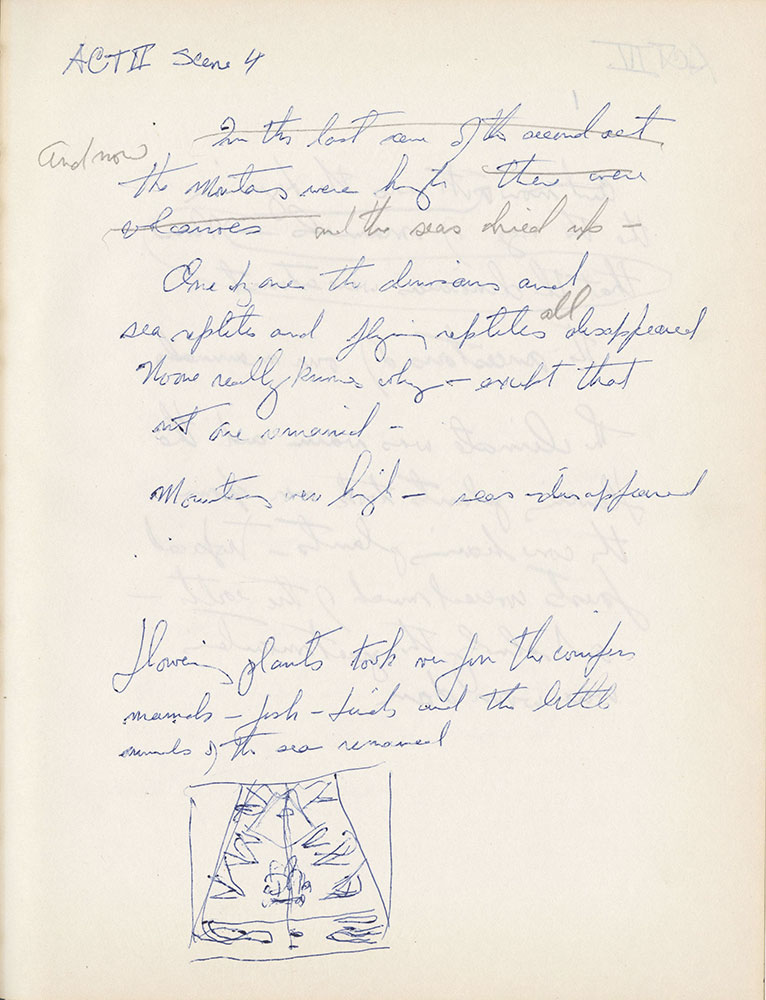 ACT II Scene 4
In the last scene of the second act
And now
the mountains were high there were
volcanoes and the seas dried up –
One by one the dinosaurs and
sea reptiles and flying reptiles all disappeared
No one really knows why – except that
not one remained –
Mountains were high – seas disappeared
flowering plants took over from the conifers
mamals – fish – birds and the little
animals of the sea remained
ACT IV